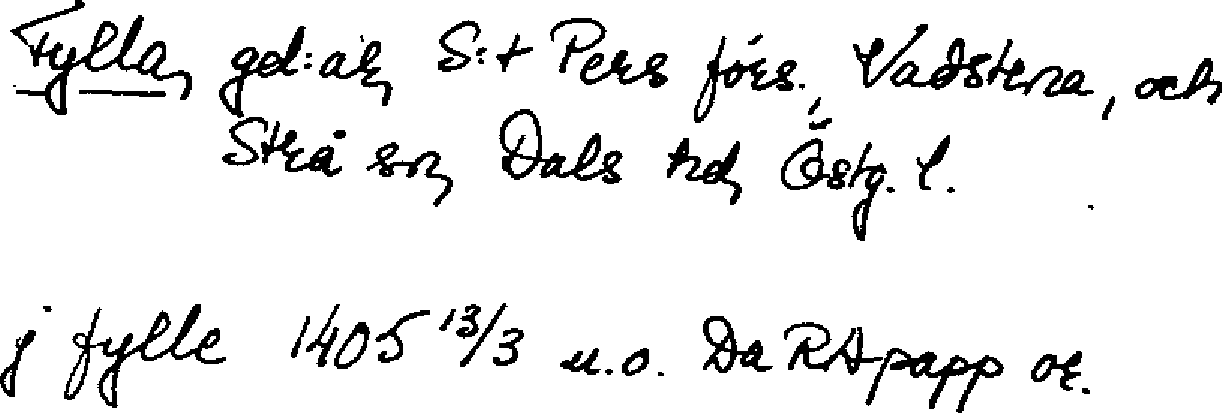 Fylla, gd:ar, S:t Pers förs., Vadstena, och
Strå sn, Dals hd, Östg. l.
j fylle 1405 13/3 u.o. Da RApapp or.